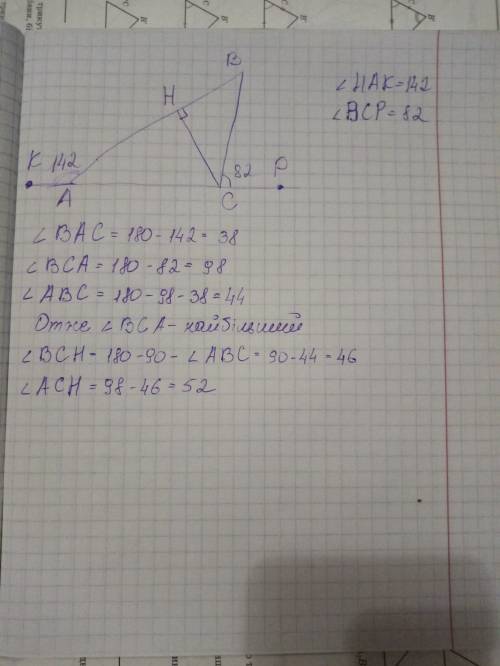 B
H
∠HAK=142
∠BCP=82
K 142
82 P
A
C
∠BAC = 180-142= 38
∠BCA = 180-82= 98
∠ABC = 180-98-38=44
Отже ∠BCA- найбільший
∠BCH= 180-90- ∠ABC= 90-44=46
∠ACH= 98-46=52